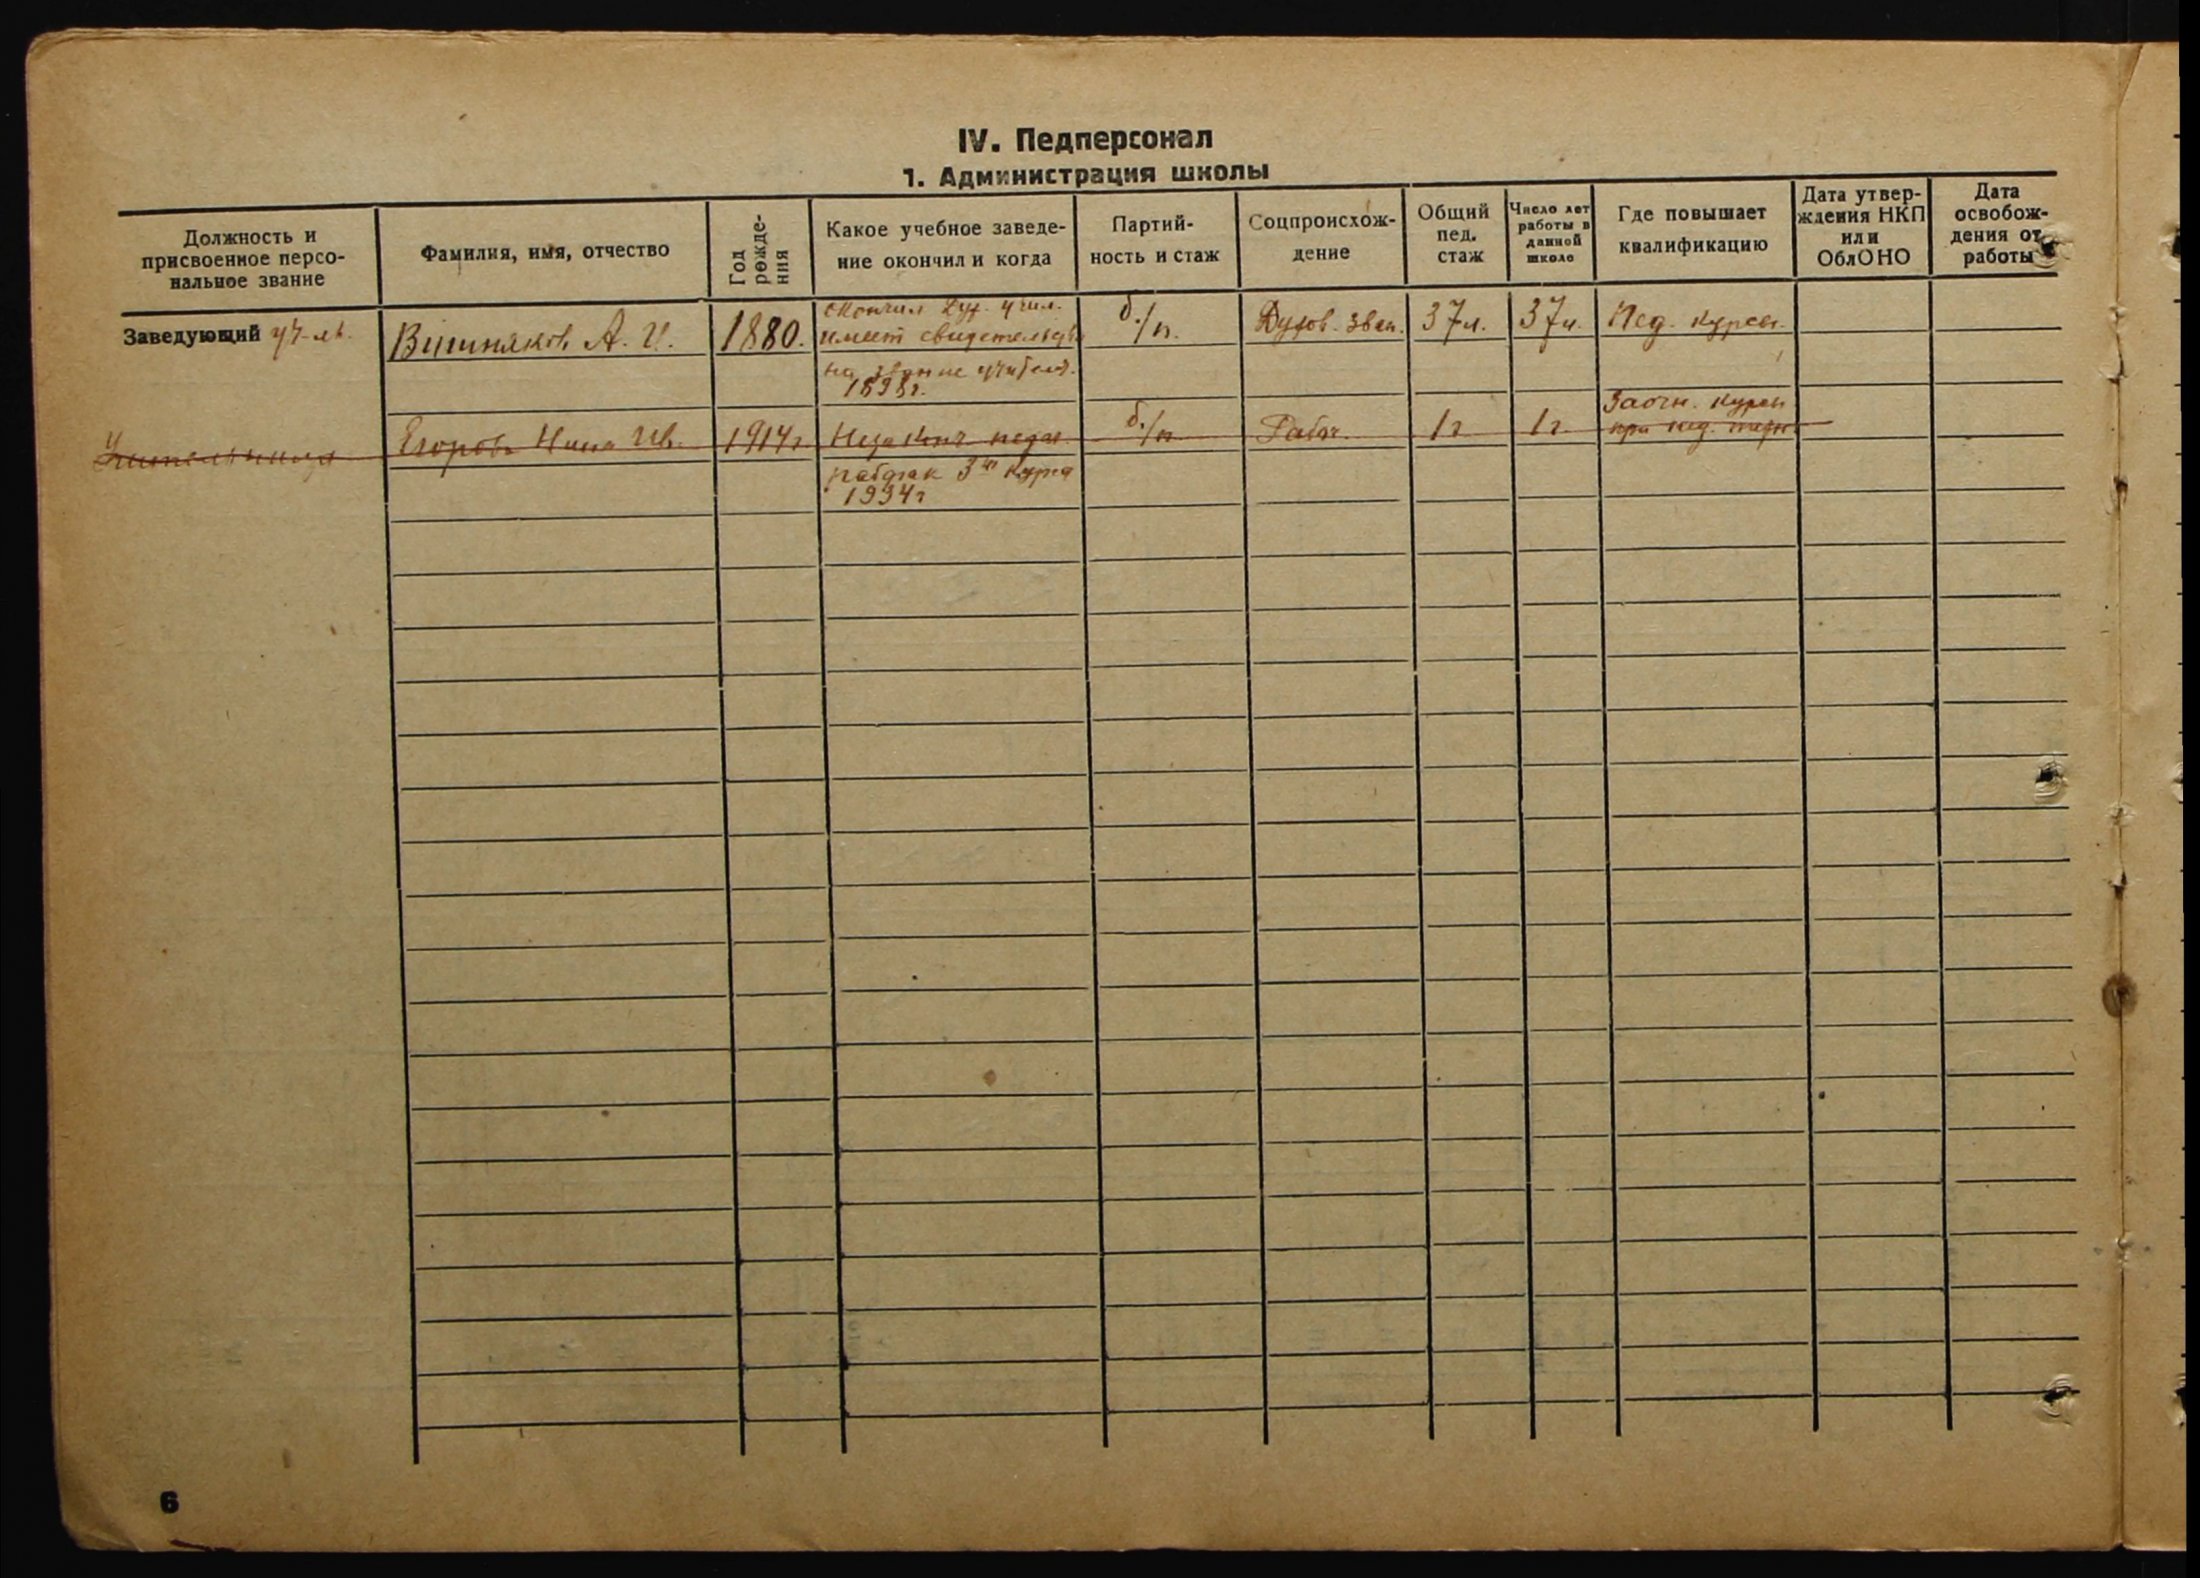 IV. Педперсонал
1. Администрация школы
Должность и
присвоенное персо-
нальное звание
Фамилия, имя, отчество
Год
рожде-
ния
Какое учебное заведе-
ние окончил и когда
Партий-
ность и стаж
Соцпроисхож-
дение
Общий
пед.
стаж
Число лет
работы в
данной
школе
Где повышает
квалификацию
Дата утвер-
ждения НКП
или
ОблОНО
Дата
освобож-
дения от
работы
Заведующий уч-ль.
Вишняков А. И.
1880.
окончил Дух. учил.
имеет свидетельство
на звание учителя.
1898г.
б./п.
Духов. зван.
37л.
37л.
Пед. курсы.
Учительница
Егорова Нина Ив.
1914г
педаг.
рабфак 3 курса
1934г
б./п
Рабоч.
1г
1г.
Заочн. курсы
при пед. техн.
6